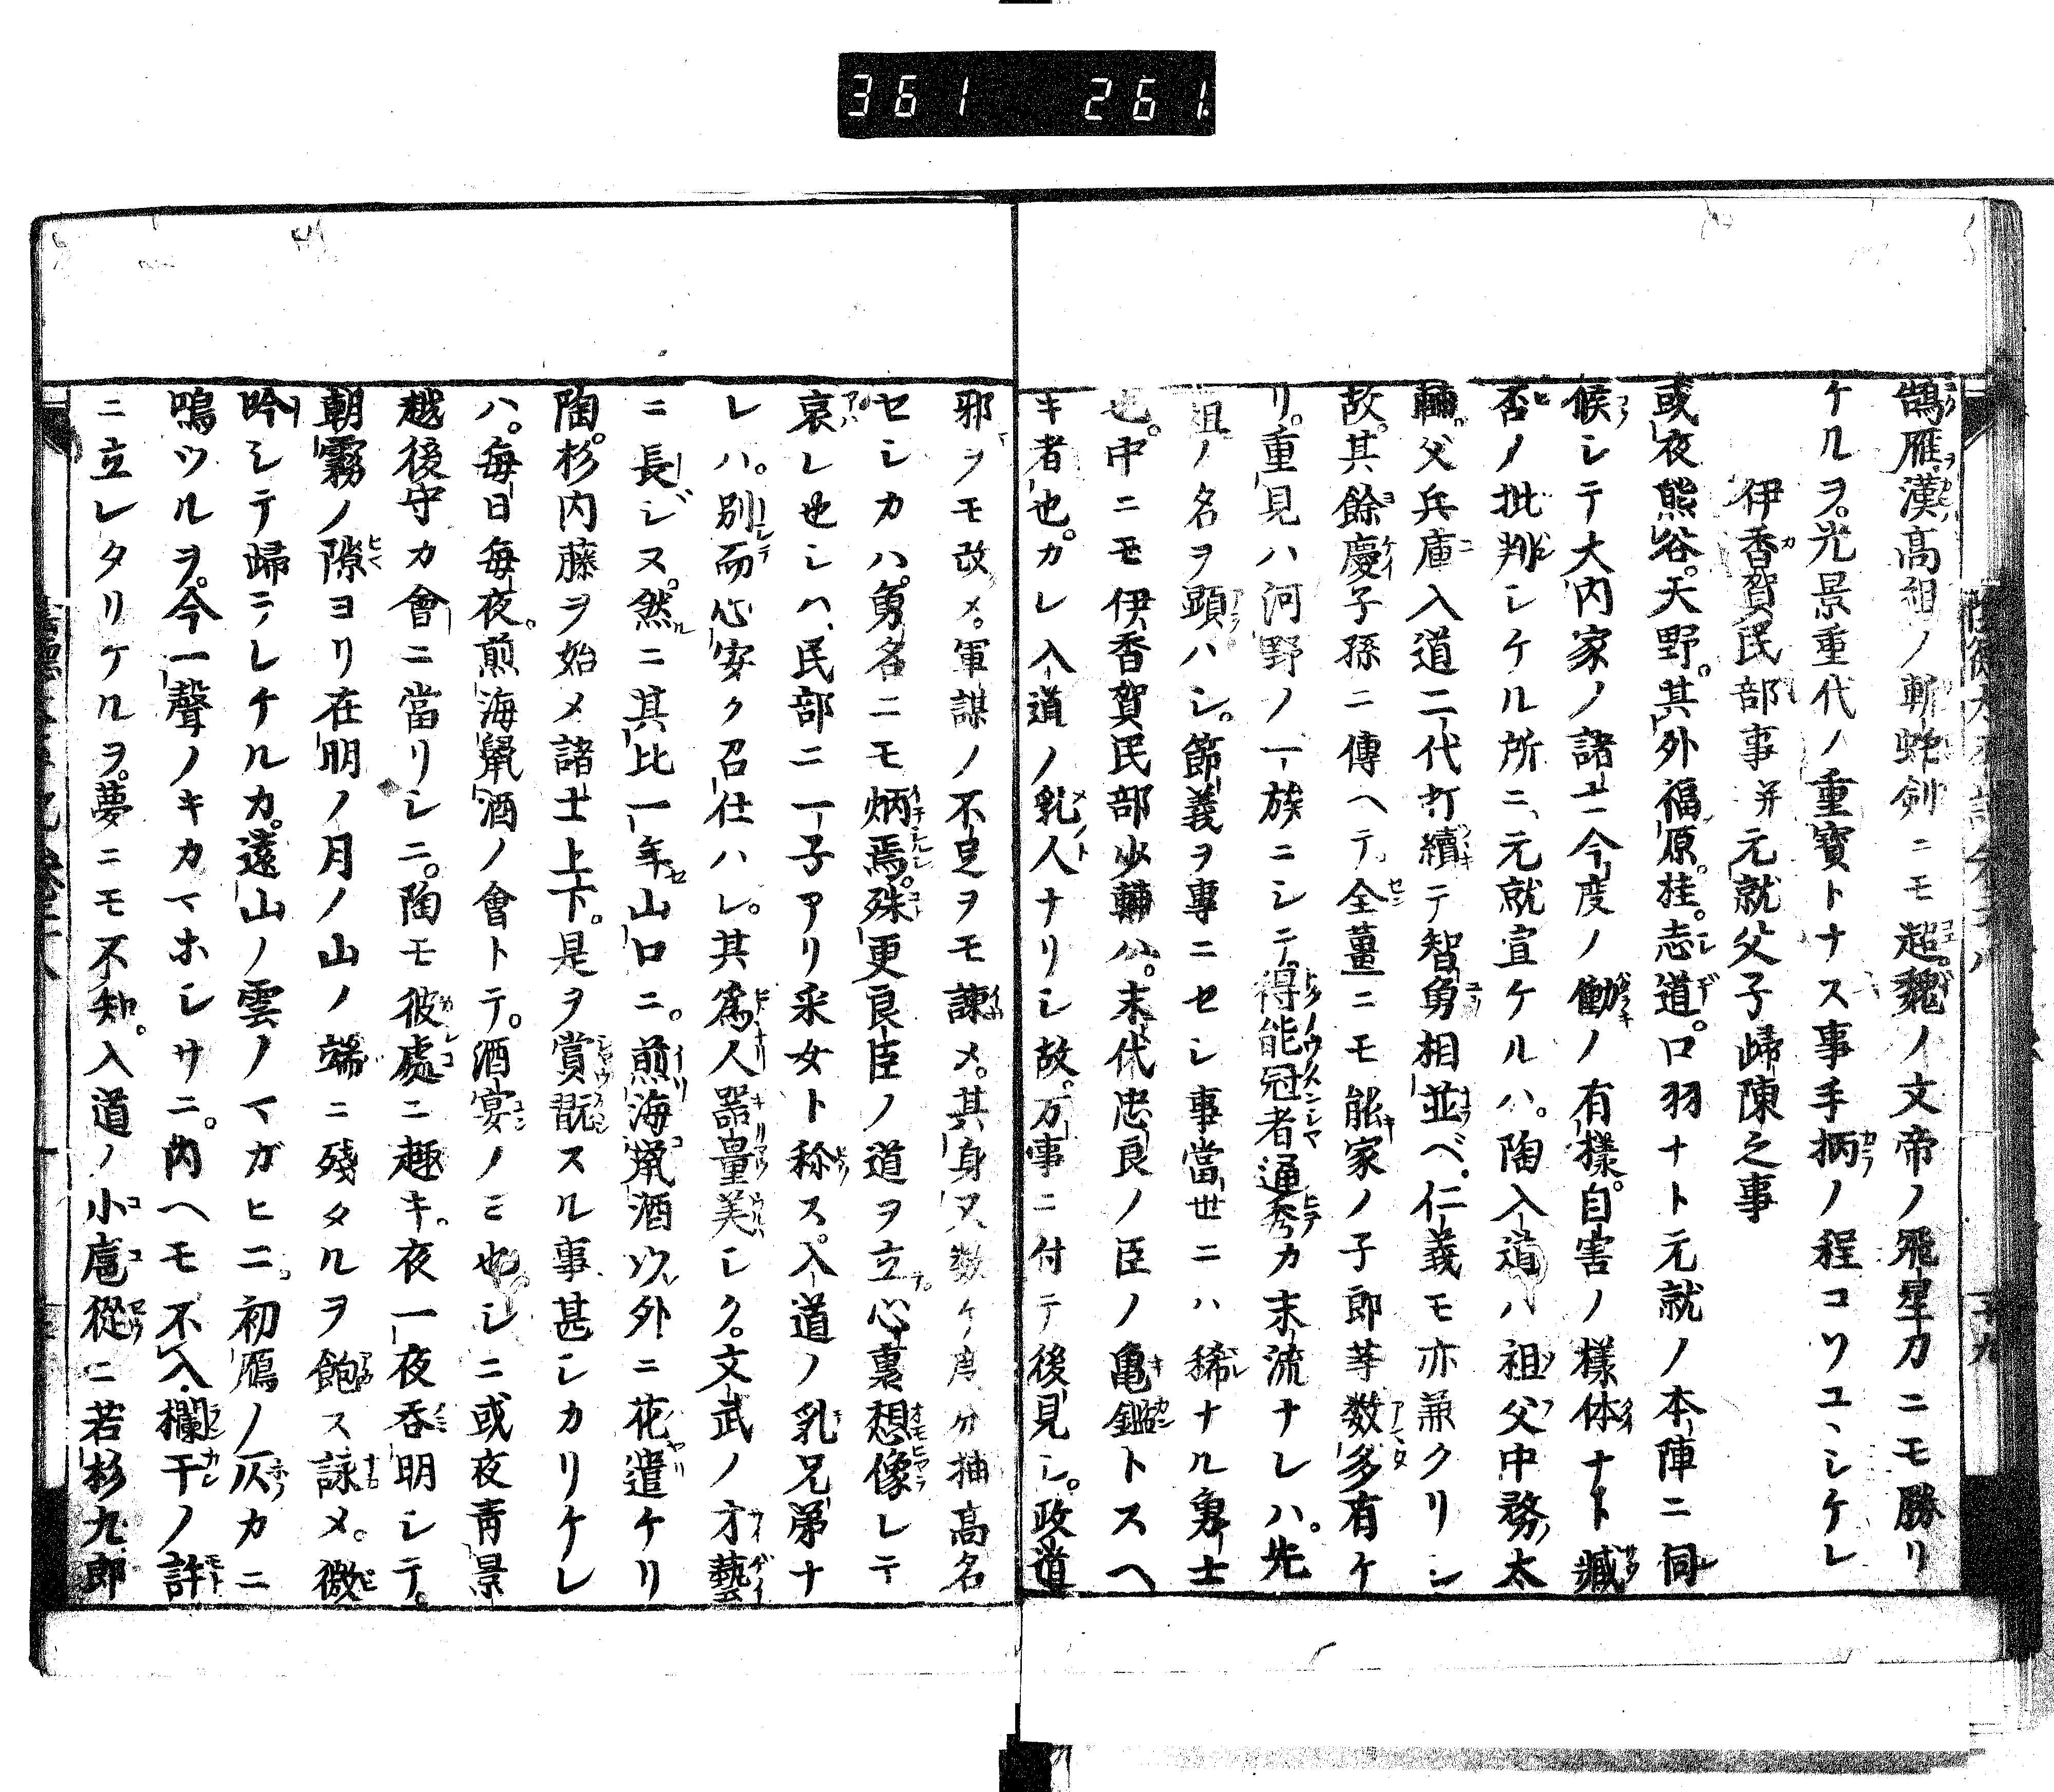 361 261
鵠雁漢高祖ノ斬蛇剣ニモ超。魏ノ文帝ノ飛星刀ニモ勝リ
ケルヲ。光景重代ノ重寳トナス事手柄ノ程コソユヽシケレ
伊香賀民部事并元就父子歸陳之事
或夜熊谷。天野。其外福原。桂。志道。口羽ナト元就ノ本陣ニ伺
候シテ大内家ノ諸士今度ノ働ノ有樣。自害ノ樣体ナト臧
否ノ批判シケル所ニ、元就宣ケルハ。陶入道ハ祖父中務太
輔。父兵庫入道二代打續テ智勇相並ベ。仁義モ亦兼クリシ
故。其餘慶子孫ニ傳ヘテ。全薑ニモ能家ノ子郎等数多有ケ
リ。重見ハ河野ノ一族ニシテ。得能冠者通秀カ末流ナレハ。先
祖ノ名ヲ顕ハシ。節義ヲ專ニセシ事當世ニハ稀ナル勇士
也。中ニモ伊香賀民部少輔ハ。末代忠良ノ臣ノ亀鑑トスヘ
キ者也。カレ入道ノ乳人ナリシ故。万事ニ付テ後見シ。政道
邪ヲモ改メ。軍謀ノ不足ヲモ諫メ。其身又数ケ度分捕高名
セシカハ。勇名ニモ炳焉。殊更良臣ノ道ヲ立心裏想像レテ
哀レ也シハ、民部ニ一子アリ采女ト称ス。入道ノ乳兄弟ナ
レハ。別而心安ク召仕ハレ。其爲人器量美シク。文武ノ才藝
ニ長ジヌ。然ニ其比一年山口ニ。煎海鼡酒以外ニ花遣ケリ
陶。杉内藤ヲ始メ諸士上下。是ヲ賞翫スル事甚シカリケレ
ハ。毎日毎夜。煎海鼡酒ノ會トテ。酒宴ノミ也シニ或夜青景
越後守カ會ニ當リシニ。陶モ彼處ニ趣キ。夜一夜呑明シテ。
朝霧ノ隙ヨリ在明ノ月ノ山ノ端ニ殘タルヲ飽ス詠メ。微
吟シテ歸ラレケルカ。遠山ノ雲ノマガヒニ。初鴈ノ仄カニ
鳴ツルヲ。今一聲ノキカマホシサニ。内ヘモ不入。欄干ノ許
ニ立レタリケルヲ。夢ニモ不知。入道ノ小扈從ニ若杉九郎